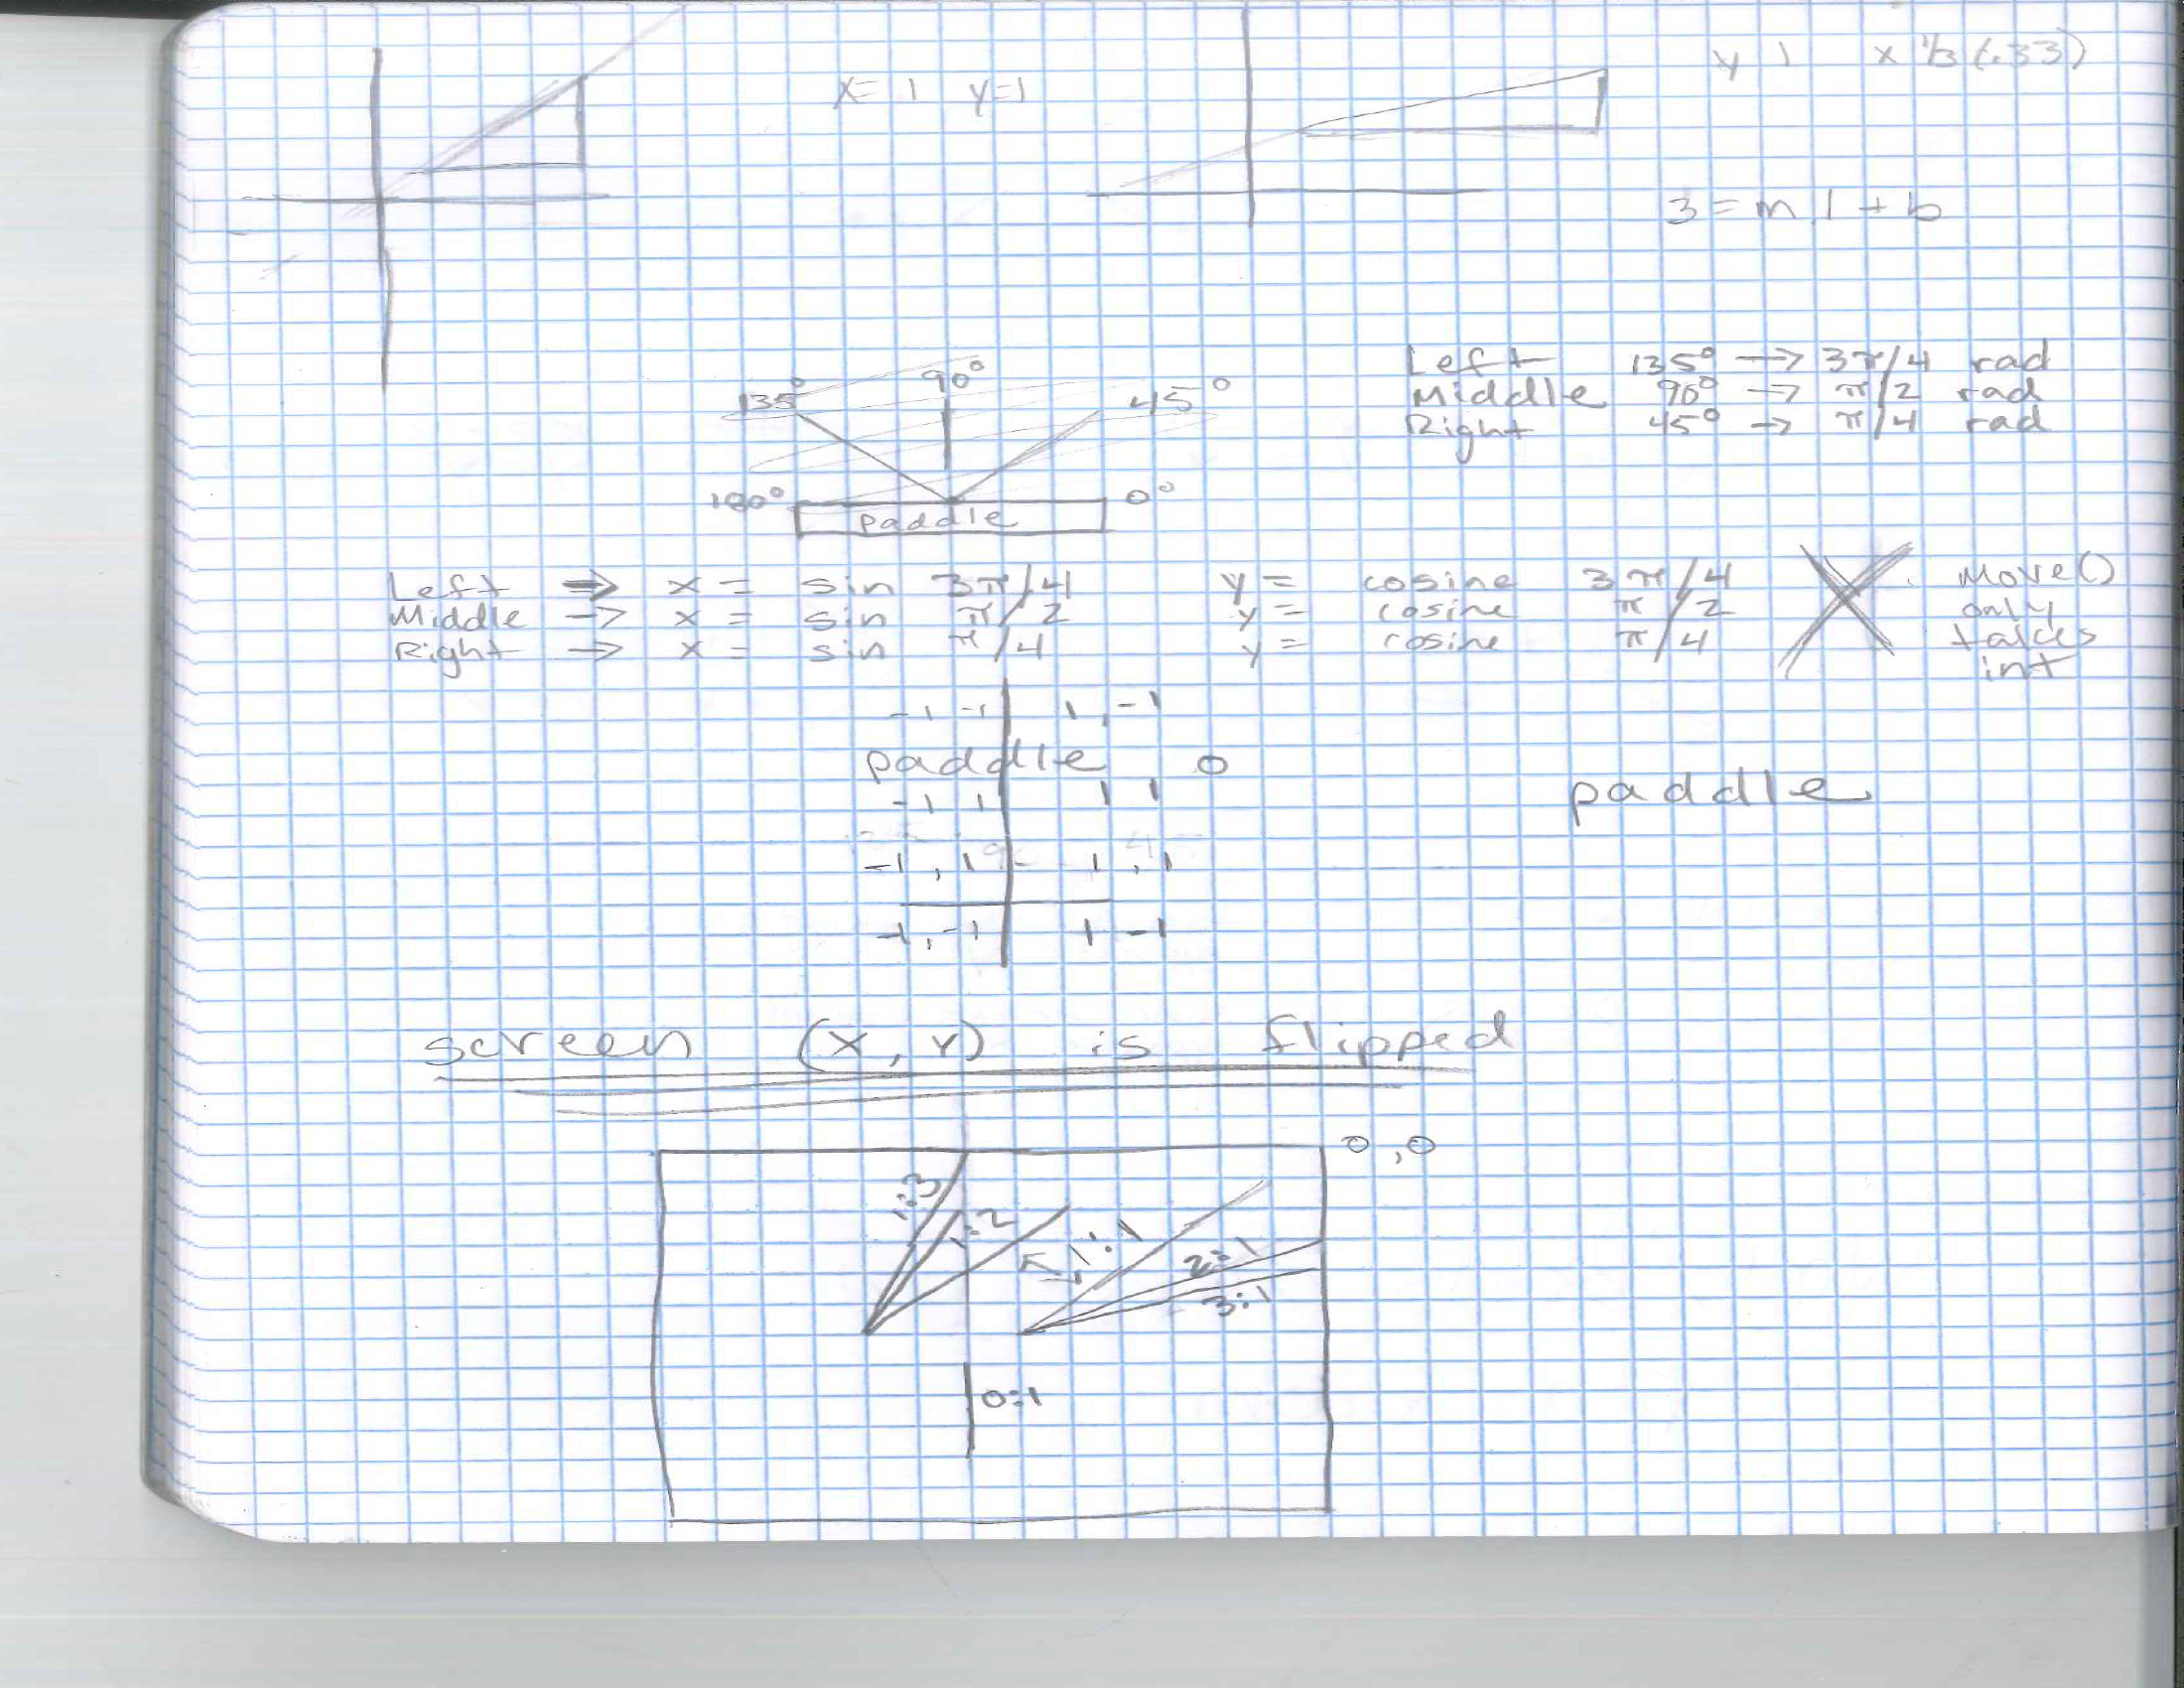 x=1 y=1
y 1 x 1/3 (.33)
3 = m 1 + b
135° 90° 45°
180° paddle 0°
Left 135° → 3π/4 rad
Middle 90° → π/2 rad
Right 45° → π/4 rad
Left ⇒ x = sin 3π/4 y = cosine 3π/4
Middle → x = sin π/2 y = cosine π/2
Right → x = sin π/4 y = cosine π/4
Move()
only
takes
int
-1 -1 1, -1
paddle 0
-1 1 1 1
paddle
-1, 1 1, 1
-1, -1 1 -1
screen (x, y) is flipped
0,0
1:3
1:2
1:1
2:1
3:1
0:1